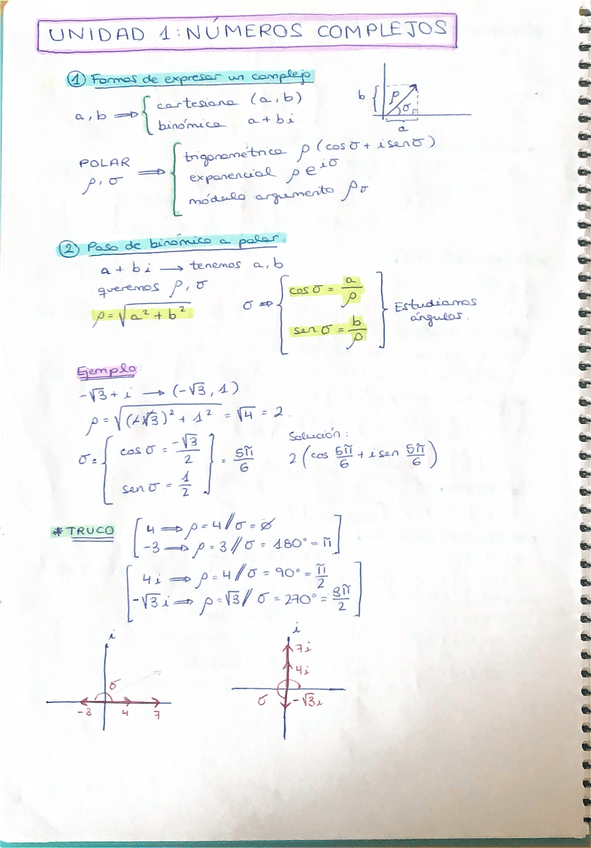 UNIDAD 1: NÚMEROS COMPLEJOS
① Formas de expresar un complejo
a, b ⟹ { cartesiana (a, b)
binómica a + bi
b { ρ σ
a
POLAR
ρ, σ ⟹ { trigonométrica ρ (cos σ + i sen σ)
exponencial ρ e^{iσ}
módulo argumento ρ_σ
② Paso de binómico a polar
a + bi ⟶ tenemos a, b
queremos ρ, σ
ρ = √(a² + b²)
σ ⟹ { cos σ = a/ρ
sen σ = b/ρ } Estudiamos
ángulos.
Ejemplo:
-√3 + i ⟶ (-√3, 1)
ρ = √((-√3)² + 1²) = √4 = 2.
σ = [ cos σ = -√3/2
sen σ = 1/2 ] = 5π/6
Solución:
2 (cos 5π/6 + i sen 5π/6)
* TRUCO
[ 4 ⟹ ρ = 4 // σ = ∅
-3 ⟹ ρ = 3 // σ = 180° = π ]
[ 4i ⟹ ρ = 4 // σ = 90° = π/2
-√3 i ⟹ ρ = √3 // σ = 270° = 3π/2 ]
i
σ
-3 4 7
i
7i
4i
σ
-√3i